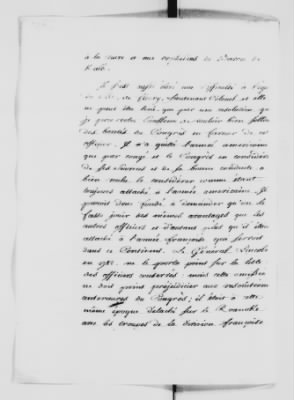 à la veuve et aux orphelins du Baron de
Kalb.
Il s'est aussi élevé une difficulté à l'égard
de M. de Fleury, lieutenant Colonel et elle
ne peut être levée que par une résolution que
je prie votre Excellence de vouloir bien solliciter
des bontés du Congrès en faveur de cet
officier. Il n'a quitté l'armée américaine
que par congé et le Congrès en considération
de ses services et de sa bonne conduite a
bien voulu le considérer comme étant
toujours attaché à l'armée américaine. Je
pourrais donc à demander qu'on le
fasse jouir des mêmes avantages que les
autres officiers et d'autant plus qu'il était
attaché à l'armée française qui servait
dans ce Continent. Le Général Lincoln
en 1782 ne le porta point sur la liste
des officiers conservés; mais cette omission
ne doit point préjudicier aux résolutions
antérieures du Congrès; il était à cette
même époque détaché sur le Roanoke
avec les troupes de la division française